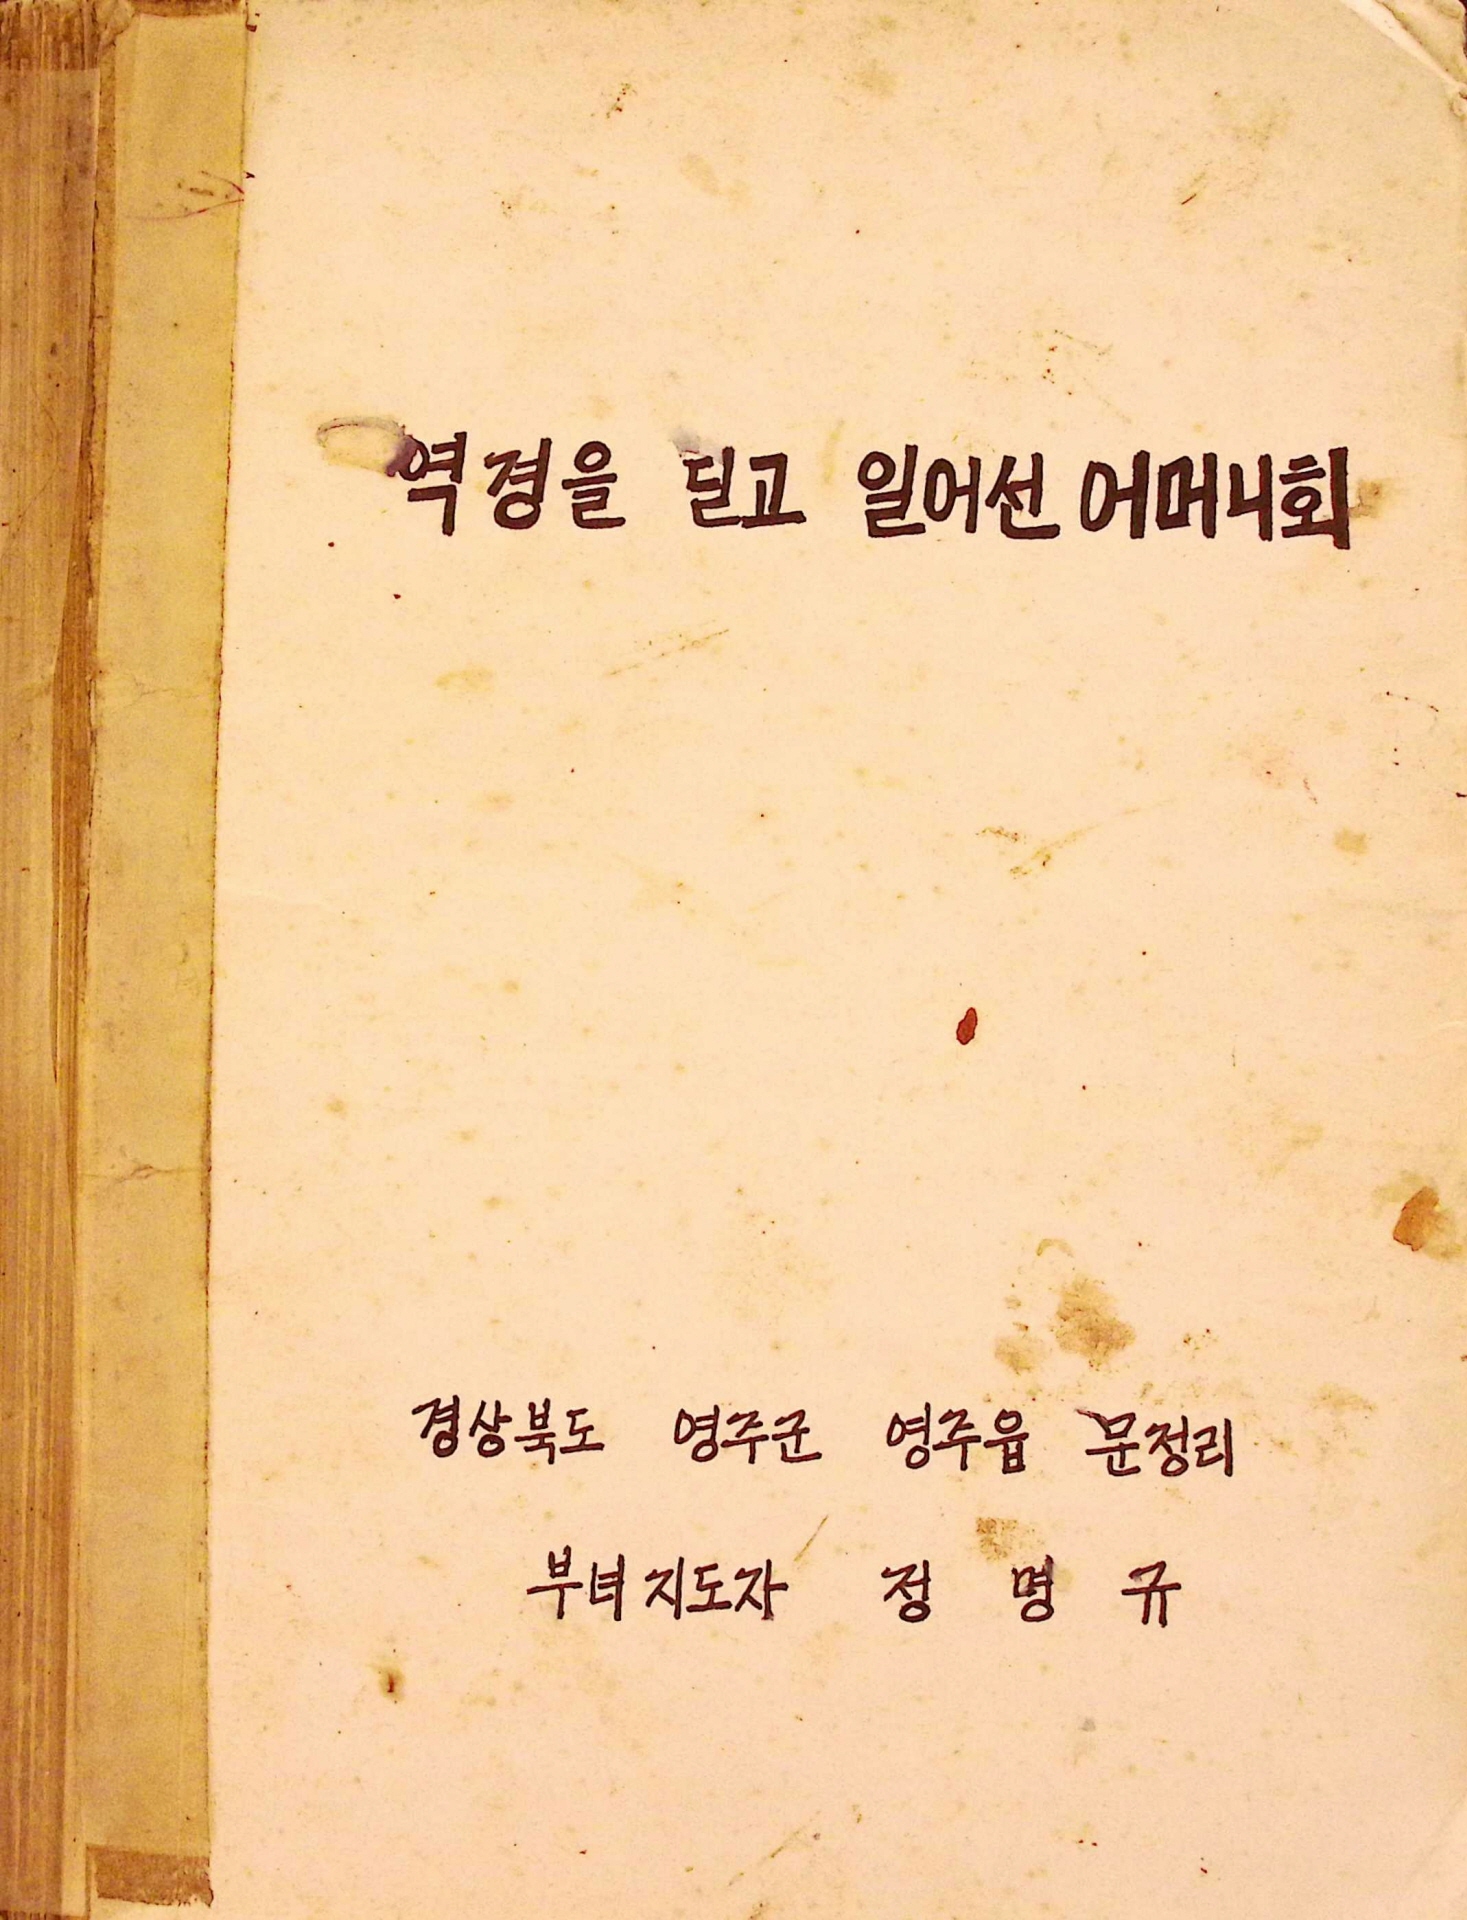 역경을 딛고 일어선 어머니회
경상북도 영주군 영주읍 문정리
부녀지도자 정명규